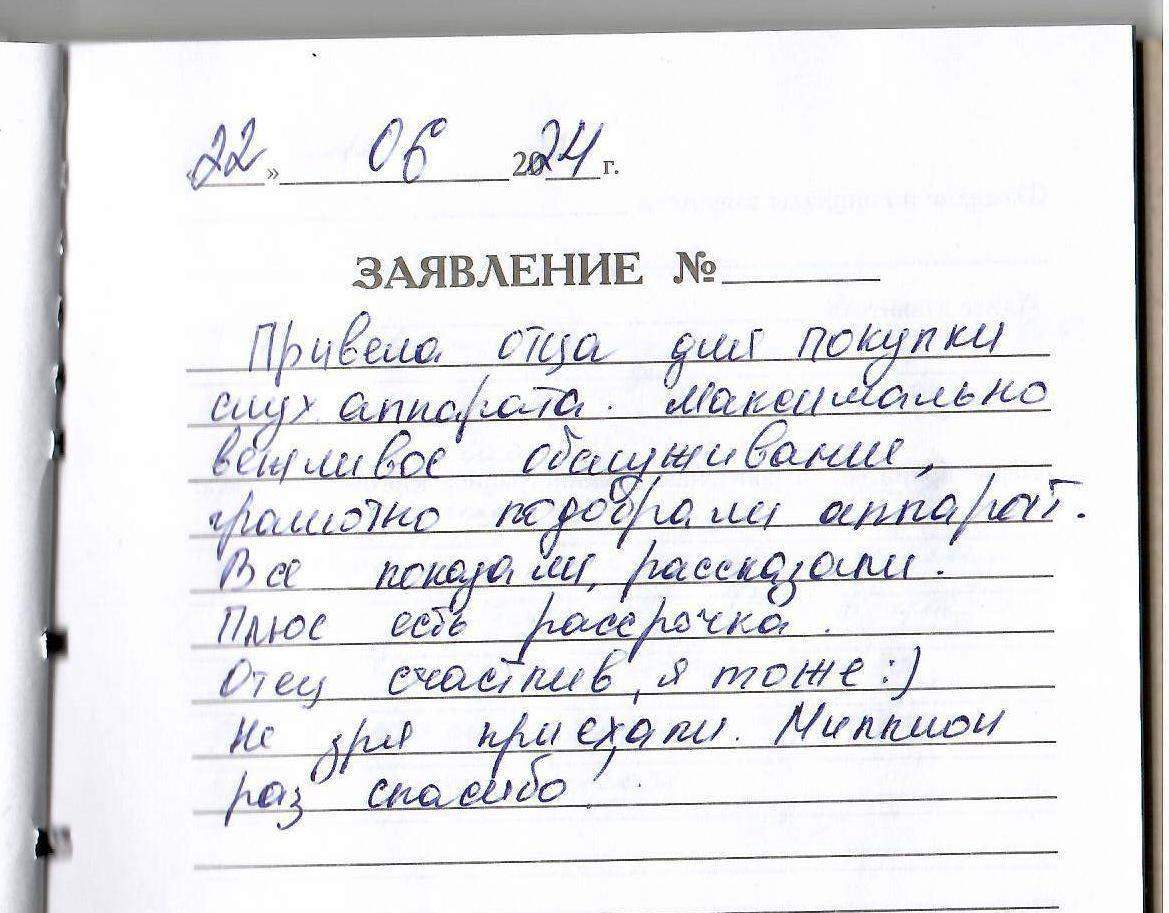 «22» 06 2024 г.
ЗАЯВЛЕНИЕ №
Привела отца для покупки
слух аппарата. Максимально
вежливое обслуживание,
грамотно подобрали аппарат.
Все показали, рассказали.
Плюс есть рассрочка.
Отец счастлив, я тоже :)
Не зря приехали. Миллион
раз спасибо!